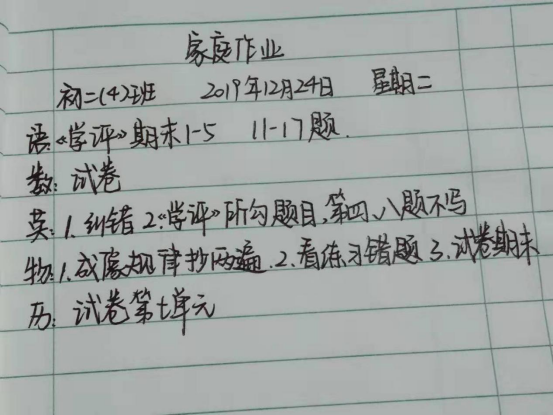 家庭作业
初二(4)班 2019年12月24日 星期二
语:《学评》期末1-5 11-17题.
数: 试卷
英: 1. 纠错 2.《学评》所勾题目,第四、八题不写
物: 1. 成像规律抄两遍. 2. 看练习错题 3. 试卷期末
历: 试卷第七单元